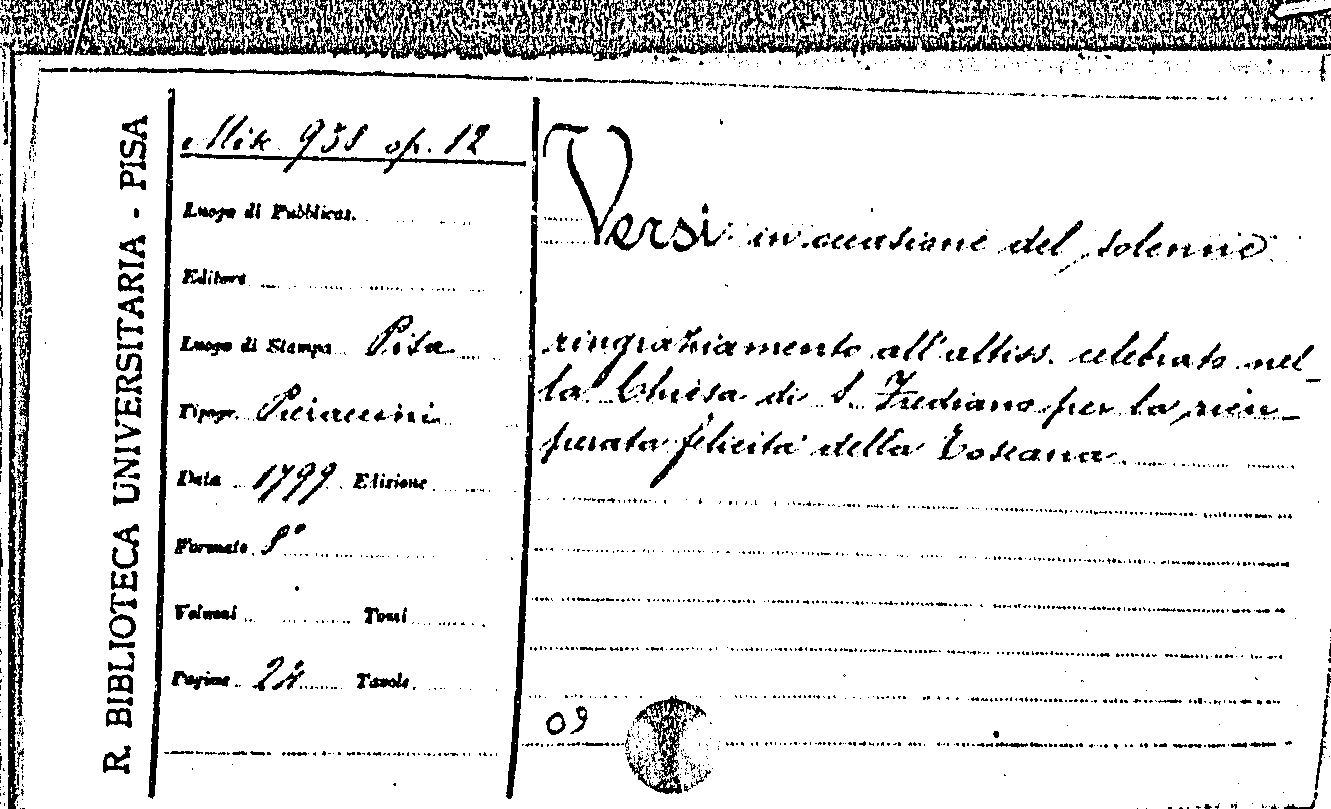 R. BIBLIOTECA UNIVERSITARIA - PISA
Misc. 938 op. 12
Luogo di Pubblicaz.
Editore
Luogo di Stampa Pisa
Tipogr. Pieraccini
Data 1799 Edizione
Formato 8°
Volumi Tomi
Pagine 24 Tavole
Versi in occasione del solenne
ringraziamento all'altiss. celebrato nel-
la Chiesa di S. Frediano per la ricu-
perata felicità della Toscana
09